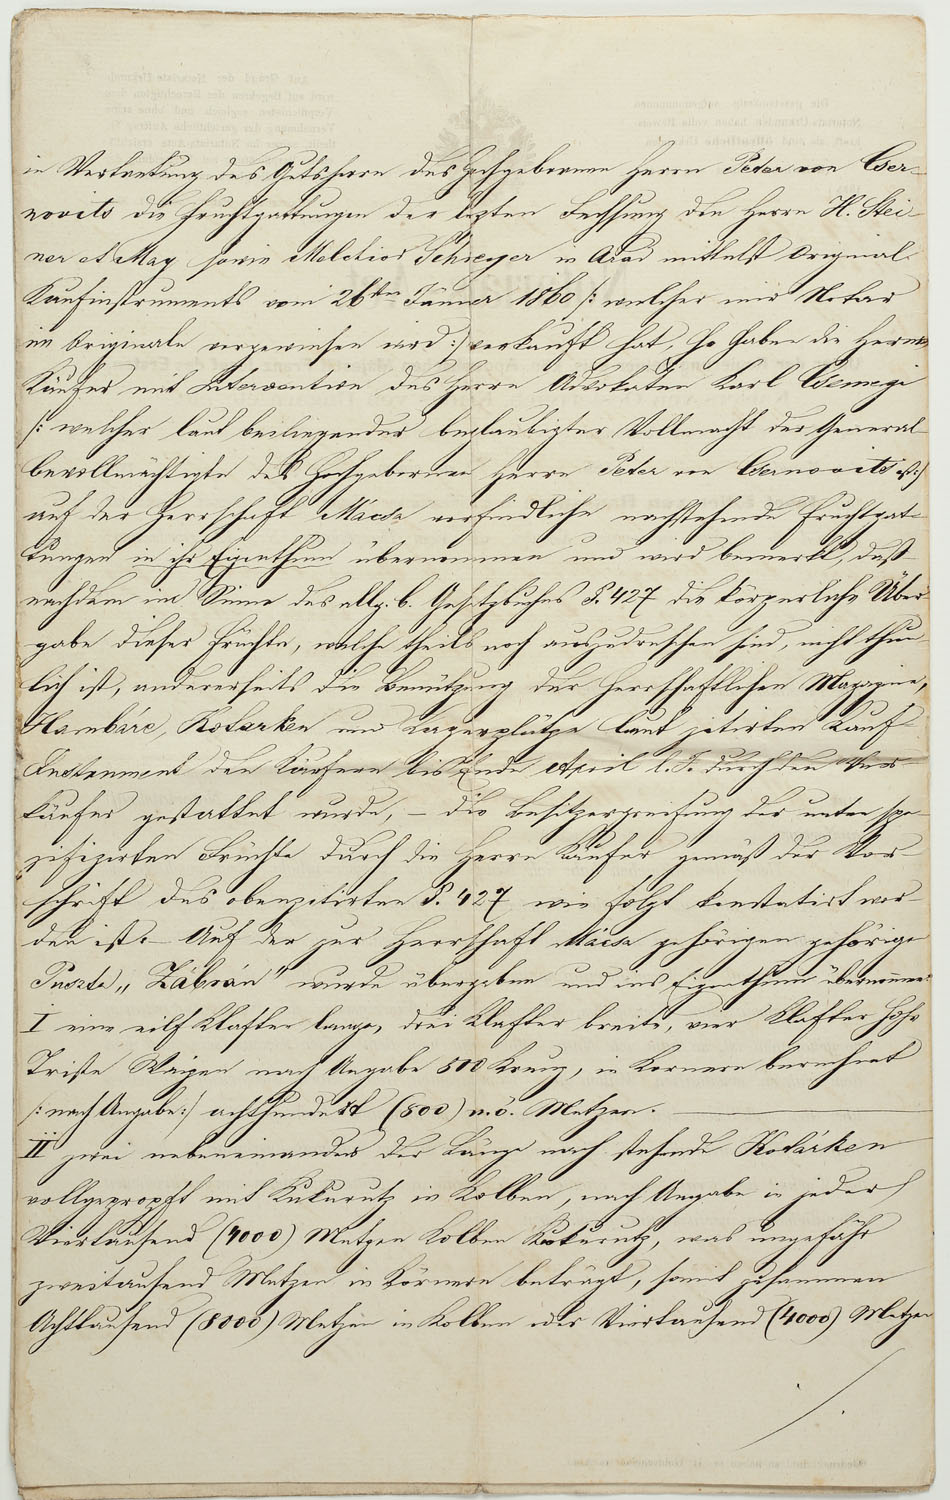 in Vertretung des Gutsherrn des Hochgebornen Herrn Peter von Cser-
novits die Fruchtgattungen der letzten Fechsung den Herrn H. Stei-
ner et May sowie Melchior Schreyer in Arad mittelst Original
Kaufinstruments vom 26ten Jänner 1860 /: welcher mir Notar
im Originale vorgewiesen wird :/ verkauft hat. So haben die Herrn
Käufer mit Intervention des Herrn Advokaten Karl Csemegi
/: welcher laut beiliegender beglaubigter Vollmacht der General-
bevollmächtigte des Hochgebornen Herrn Peter von Csernovits ist :/
auf der Herrschaft Mácsa vorfindliche nachstehende Fruchtgat-
tungen in ihr Eigenthum übernommen und wird bemerkt, daß
nachdem im Sinne des allg. b. Gesetzbuches §. 427 die körperliche Über-
gabe dieser Früchte, welche theils noch auszudreschen sind, nicht thun-
lich ist, andererseits die Benützung der Herrschaftlichen Magazine,
Hambáre, Kotarken und Lagerplätze laut zitirten Kauf-
Instrument den Käufern bis Ende April l. J. durch den Ver-
käufer gestattet wurde, – die Besitzergreifung der unten spe-
zifizirten Früchte durch die Herrn Käufer gemäß der Vor-
schrift des obenzitirten §. 427 wie folgt konstatirt wor-
den ist. – Auf der zur Herrschaft Mácsa gehörigen gehörige
Puszta „Zábrán" wurde übergeben und ins Eigenthum übernommen:
I eine eilf Klafter lange, drei Klafter breite, vier Klafter hohe
Triste Waizen nach Angabe 500 Kreuz, in Kornern berechnet
/: nach Angabe :/ achthundert (800) n. ö. Metzen.
II zwei nebeneinander der Länge nach stehende Kotárken
vollgepropft mit Kukurutz in Kolben, nach Angabe in jeder
Viertausend (4000) Metzen Kolben Kukurutz, was ungefähr
zweitausend Metzen in Körnern beträgt, somit zusammen
Achttausend (8000) Metzen in Kolben oder Viertausend (4000) Metzen